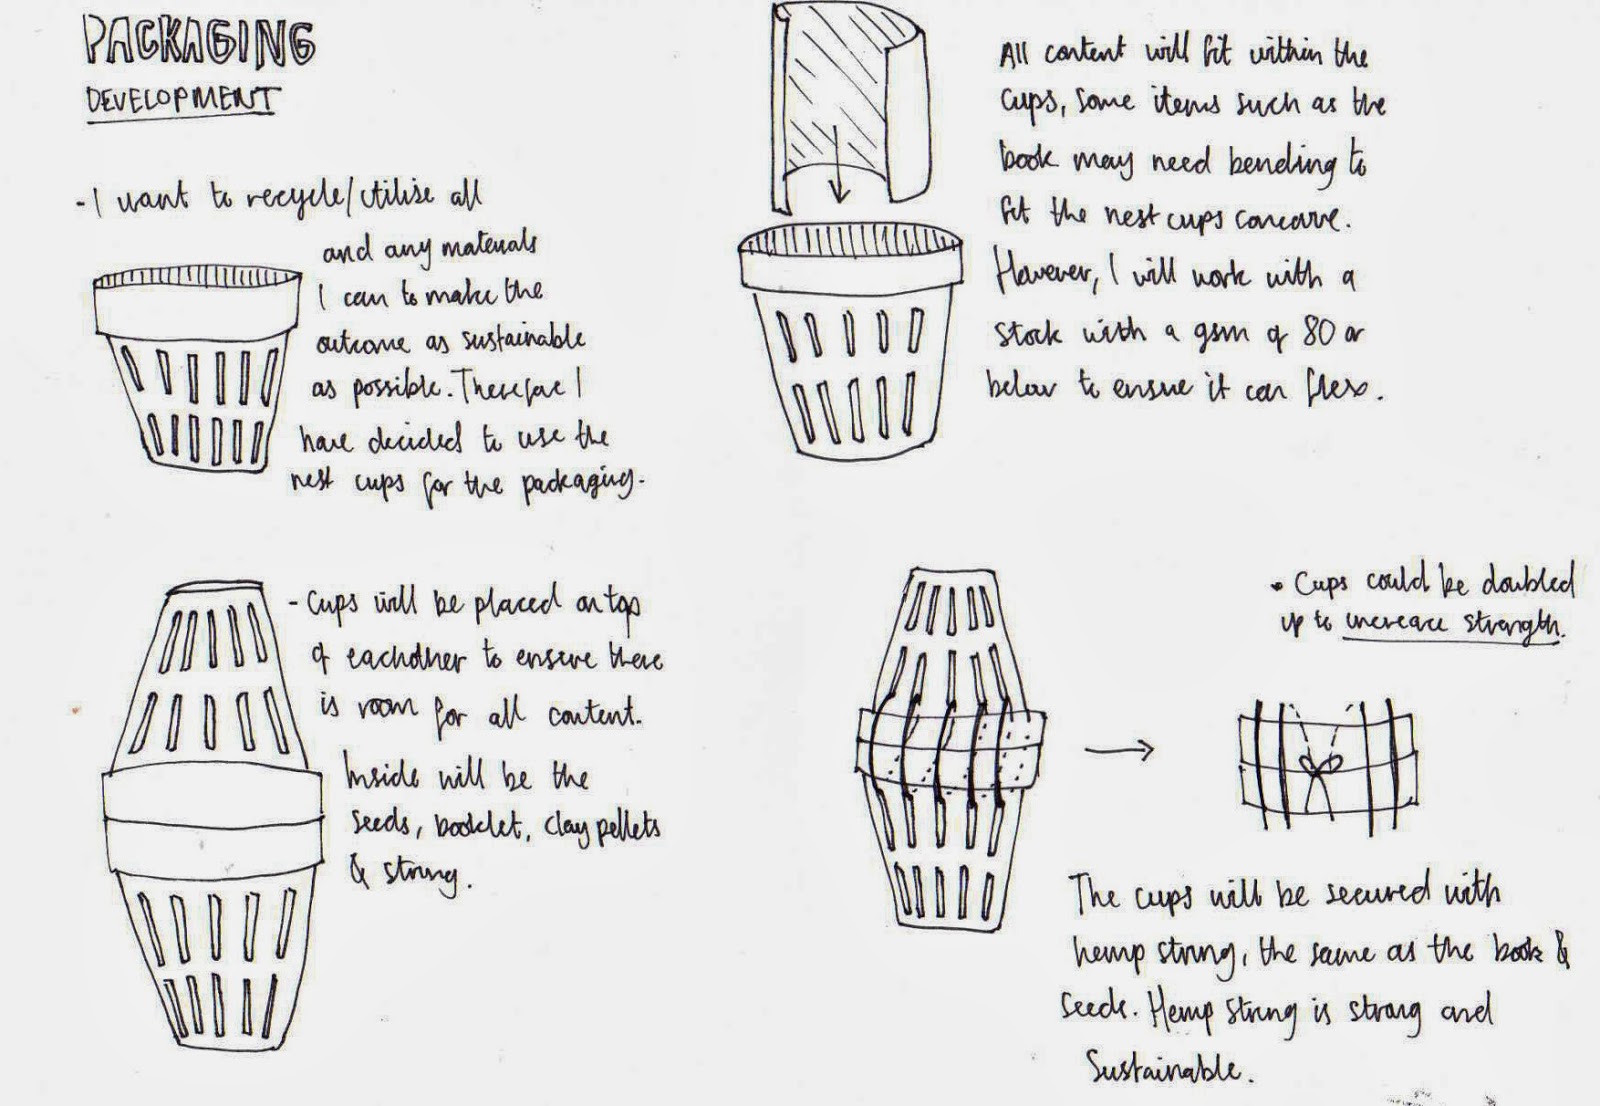 PACKAGING
DEVELOPMENT
- I want to recycle/utilise all
and any materials
I can to make the
outcome as sustainable
as possible. Therefore I
have decided to use the
nest cups for the packaging.
All content will fit within the
cups, some items such as the
book may need bending to
fit the nest cups concave.
However, I will work with a
stock with a gsm of 80 or
below to ensure it can flex.
- Cups will be placed on top
of eachother to ensure there
is room for all content.
Inside will be the
seeds, booklet, clay pellets
& string.
• Cups could be doubled
up to increase strength.
The cups will be secured with
hemp string, the same as the book &
seeds. Hemp string is strong and
Sustainable.